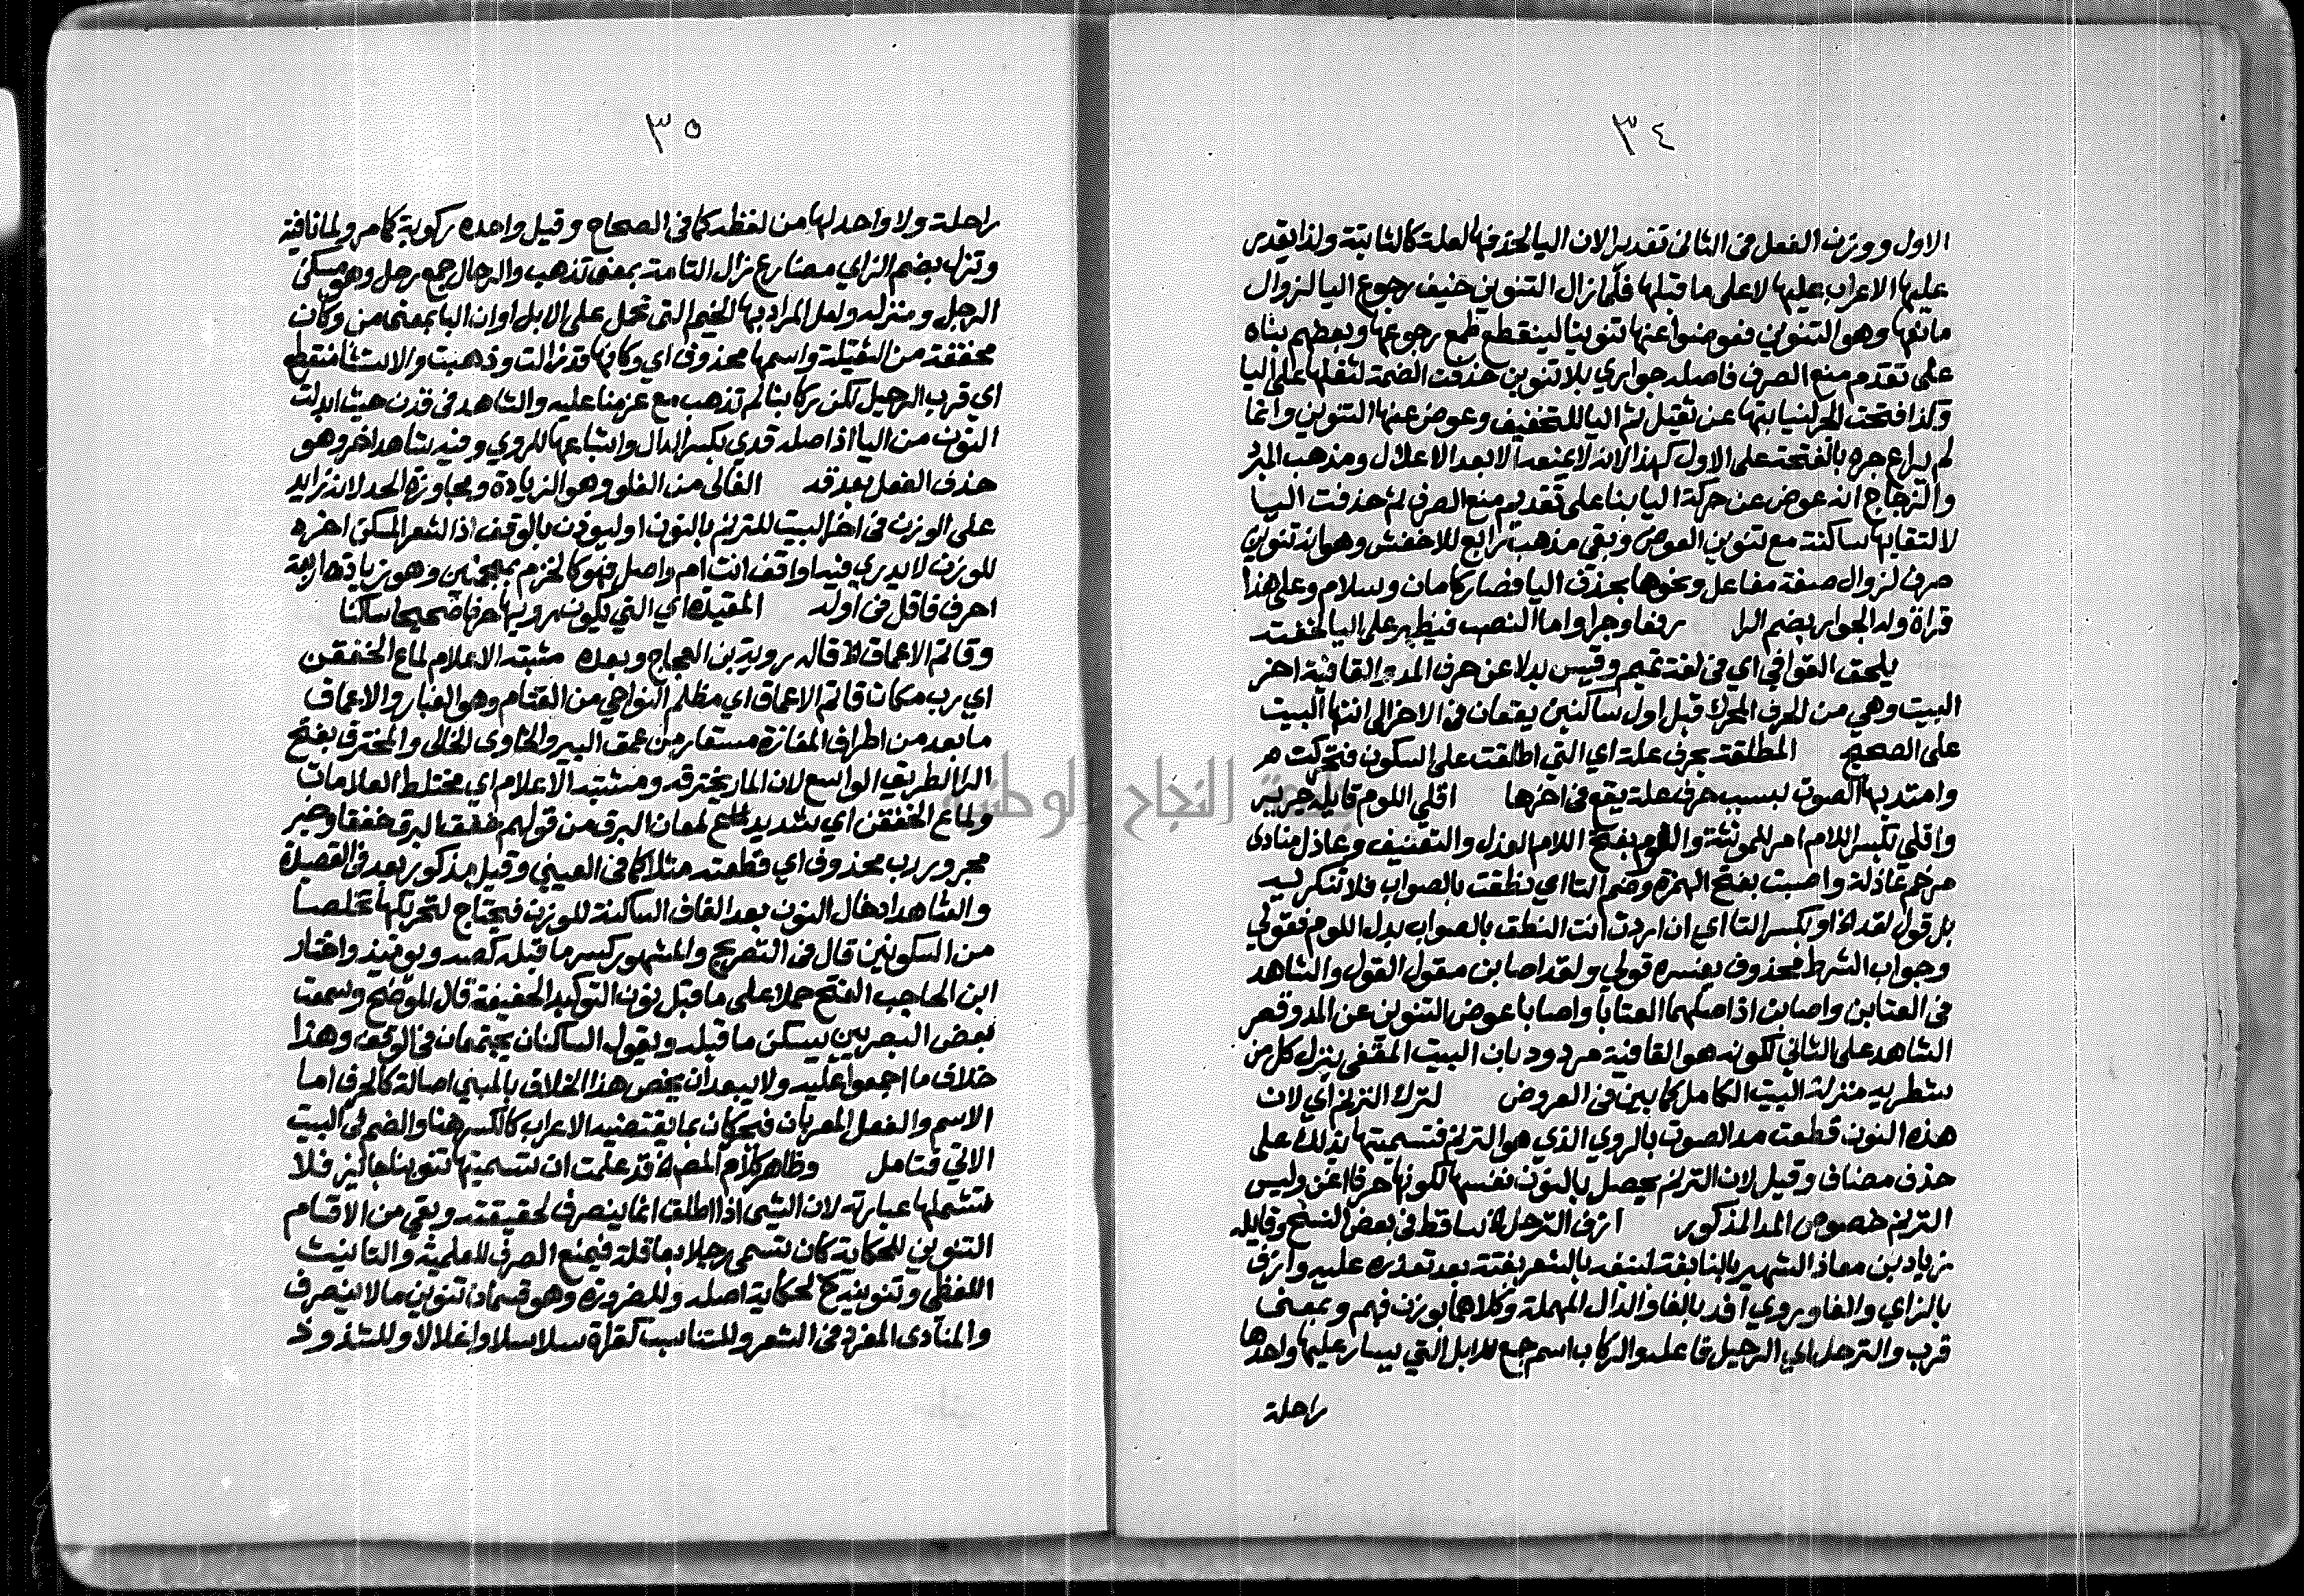 ٣٤
الاول ووزن الفعل في الثاني تقديرا لان اليا لحذفها لعلة كالثابتة ولذا يقدر
عليها الاعراب عليها لا على ما قبلها فلما زال التنوين خيف رجوع اليا لزوال
مانعها وهو التنوين فعوضوا عنها تنوينا لينقطع طمع رجوعها وبعظهم بناه
على تقدم منع الصرف فاصله جواري بلا تنوين حذفت الضمة لثقلها على اليا
وكذا فتحت الجر لنيابتها عن ثقيل ثم اليا للتخفيف وعوض عنها التنوين وانما
لم يراع جره بالفتحة على الاول كهذا لانه لا يمنع الا بعد الاعلال ومذهب المبرد
والزجاج انه عوض عن حركة اليا بنا على تقديم منع الصرف ثم حذفت اليا
لالتقايها ساكنة مع تنوين العوض وبقي مذهب رابع للاخفش وهو انه تنوين
صرف لزوال صيغة مفاعل ونحوها بحذف اليا فصار كامان وسلام وعلى هذا
قراة وله الجوار بضم الرا رفعا وجرا واما النصب فيظهر على اليا لخفته
يلحق القوافي اي في لغة تميم وقيس بدلا عن حرف المد والقافية اخر
البيت وهي من الحرف المحرك قبل اول ساكنين يقعان في الاخر الى انتها البيت
على الصحيح المطلقة بحرف علة اي التي اطلقت على السكون فتحركت هر
وامتد بها الصوت بسبب حرف علة يقع في اخرها اقلي اللوم قايله جرير
واقلي بكسر اللام امر للمونثة واللوم بفتح اللام العذل والتعنيف وعاذل منادى
مرخم عاذلة واصبت بفتح الهمزة وضم التا اي نطقت بالصواب فلا تنكريه
بل قولي لقد الخ او بكسر التا اي ان اردت انت النطق بالصواب بدل اللوم فقولي
وجواب الشرط محذوف يفسره قولي ولقد اصابن مقول القول والشاهد
في العتابن واصابن اذ اصلهما العتابا واصابا عوض التنوين عن المد وقصر
الشاهد على الثاني لكونه هو القافية مردود بان البيت المقفى ينزل كل من
شطريه منزلة البيت الكامل كما بين في العروض لترك الترنم اي لان
هذه النون قطعت مد الصوت بالروي الذي هو الترنم فتسميتها بذلك على
حذف مضاف وقيل لان الترنم يحصل بالنون نفسها لكونها حرفا اغن وليس
الترنم خصوص المد المذكور ازف الترحل الخ ساقط في بعض النسخ وقايله
زياد بن معاذ الشهير بالنابغة لنبغه بالشعر بغتة بعد تعذره عليه وازف
بالزاي والفا ويروي افد بالفا والدال المهملة وكلاهما بوزن فهم وبمعنى
قرب والترحل اي الرحيل فاعله والركاب اسم جمع للابل التي يسار عليها واحدها
راحلة
٣٥
راحلة ولا واحد لها من لفظه كما في الصحاح وقيل واحده ركوبة كما مر ولما نافية
وتزل بضم الزاي مضارع زال التامة بمعنى تذهب والرحال جمع رحل وهو مسكن
الرجل ومنزله ولعل المراد بها الخيم التي تحمل على الابل او ان البا بمعنى من وكان
مخففة من الثقيلة واسمها محذوف اي وكانها قد زالت وذهبت والاستثنا منقطع
اي قرب الرحيل لكن ركابنا لم تذهب مع عزمنا عليه والشاهد في قدن حيث ابدلت
النون من اليا اذ اصله قدي بكسر الدال واشباعها للروي وفيه شاهد اخر وهو
حذف الفعل بعد قد الغالي من الغلو وهو الزيادة ومجاوزة الحد لانه زايد
على الوزن في اخر البيت للترنم بالنون او ليوذن بالوقف اذ الشعر المسكن اخره
للوزن لا يدري فيه اواقف انت ام واصل فهو كالخزم بمعجمتين وهو زيادة اربعة
احرف فاقل في اوله المقيدة اي التي يكون رويها حرفا صحيحا ساكنا
وقاتم الاعماق الخ قاله رويبة بن العجاج وبعده مشتبه الاعلام لماع الخفقن
اي رب مكان قاتم الاعماق اي مظلم النواحي من القتام وهو الغبار والاعماق
ما بعد من اطراف المفازة مستعار من عمق البير والخاوى الخالي والمخترق بفتح
الرا الطريق الواسع لان المار يخترقه ومشتبه الاعلام اي مختلط العلامات
ولماع الخفقن اي شديد لمعان البرق من قولهم خفق البرق خفقا وخبر
مجرور رب محذوف اي قطعته مثلا كما في العيني وقيل مذكور بعد في القصيدة
والشاهد ادخال النون بعد القاف الساكنة للوزن فيحتاج لتحريكها تخلصا
من السكونين قال في التصريح والمشهور كسر ما قبله كصه ويومئذ واختار
ابن الحاجب الفتح حملا على ما قبل نون التوكيد الخفيفة قال الموضح وسمعت
بعض البصريين يسكن ما قبله ويقول الساكنان يجتمعان في الوقف وهذا
خلاف ما اجمعوا عليه ولا يبعد ان يخص هذا الخلاف بالمبني اصالة كالحرف اما
الاسم والفعل المعربان فيحركان بما يقتضيه الاعراب كالكسر هنا والضم في البيت
الاتي فتامل وظاهر كلام المص الخ قد علمت ان تسميتها تنوينا مجاز فلا
تشملها عبارته لان الشي اذا اطلق انما ينصرف لحقيقته وبقي من الاقسام
التنوين للحكاية كان تسمي رجلا بعاقلة فيمنع الصرف للعلمية والتانيث
اللفظي وتنوينه ح لحكاية اصله وللضرورة وهو قسمان تنوين ما لا ينصرف
والمنادى المفرد في الشعر وللتناسب كقراة سلاسلا واغلالا وللشذوذ
جامعة النجاح الوطنية